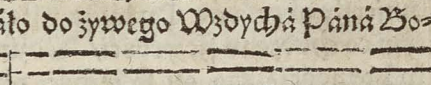 áło do żywego Wzdychá Páná Bo⸗